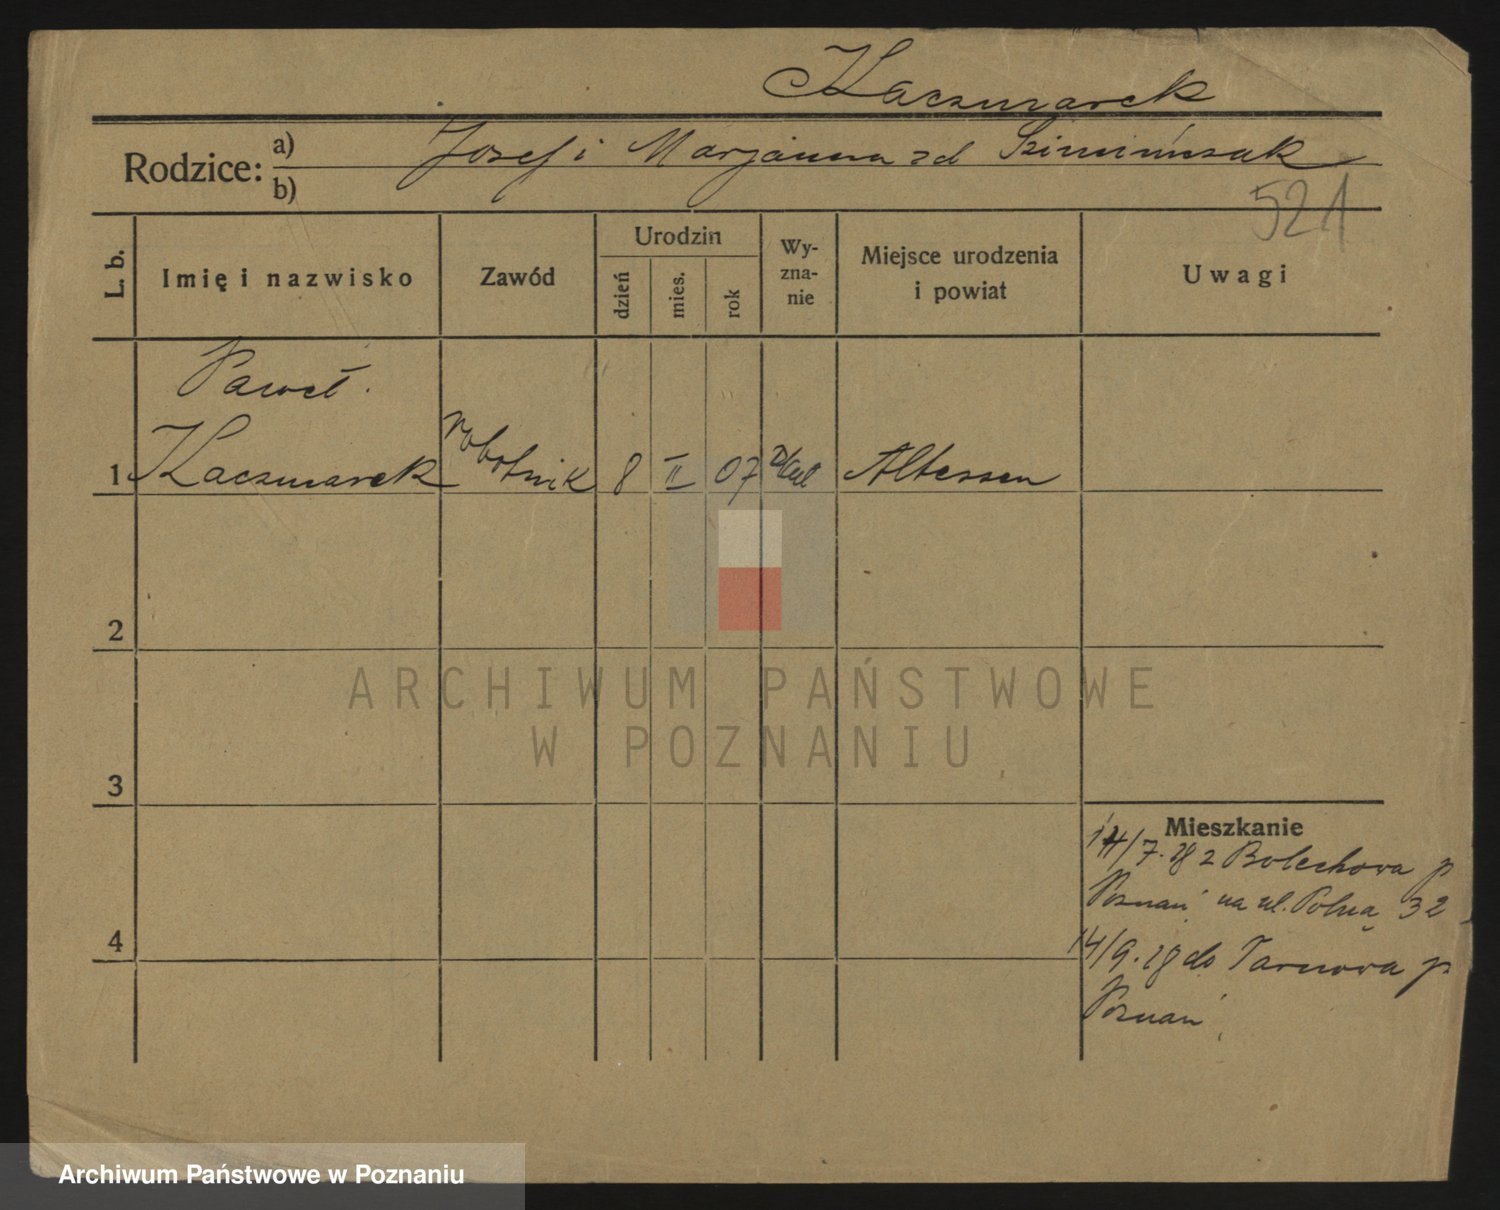 Kaczmarek
Rodzice: a) Josef i Marjanna zd
b)
521
L. b.
Imię i nazwisko
Zawód
Urodzin
dzień
mies.
rok
Wy-
zna-
nie
Miejsce urodzenia
i powiat
Uwagi
Paweł
1 Kaczmarek robotnik 8 II 07 Altessen
2
3
4
Mieszkanie
14/7.28 z Bolechowa p
Poznań na ul. Polną 32
14/9.28 do Tarnowa p
Poznań
ARCHIWUM PAŃSTWOWE
W POZNANIU
Archiwum Państwowe w Poznaniu